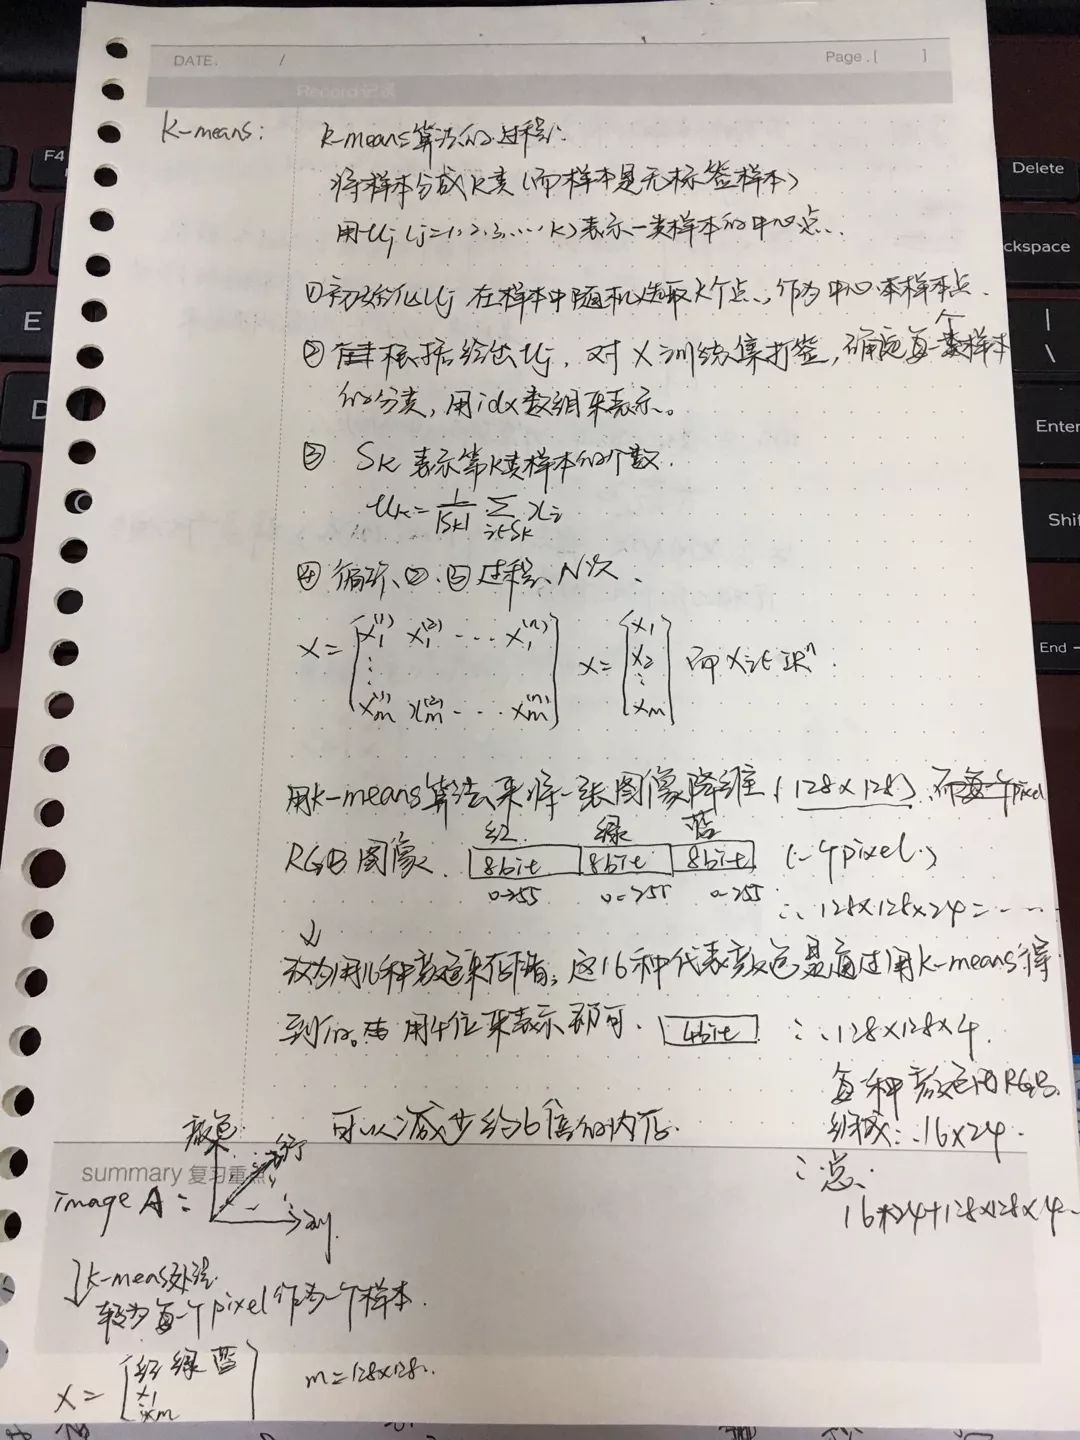 DATE. /
Page.[ ]
Record记录
K-means:
K-means算法的过程:
将样本分成K类(而样本是无标签样本)
用Uj (j=1,2,3,...,K)表示一类样本的中心点.
①初始化Uj 在样本中随机选取K个点,作为中心样本点.
②根据给出Uj,对X训练集打签,确定每一个样本
的分类,用idx数组来表示。
③ SK 表示第K类样本的个数.
UK = 1/|SK| ∑ i∈SK xi
④循环、②、③过程、N次、
X = [X1^(1) X1^(2) ... X1^(n) ⋮ Xm^(1) Xm^(2) ... Xm^(n)] X = [X1 X2 ⋮ Xm] 而 Xi∈ℝ^n.
用K-means算法来将一张图像降维(128×128).而每一个pixel
红 绿 蓝
RGB图像. 8bit 8bit 8bit (一个pixel.)
0~255 0~255 0~255
∴128×128×24=....
↓
改为用16种颜色来存储,这16种代表颜色是通过用K-means得
到的。用4位来表示即可. 4bit ∴128×128×4.
每种颜色由RGB
组成∴16×24.
可以减少约6倍的内存.
∴总.
16×24+128×128×4.
summary 复习重点
颜色 行
image A = 列.
↓K-meas处理.
转为每一个pixel作为一个样本.
X = [红 绿 蓝 X1 ⋮ Xm] m=128×128..